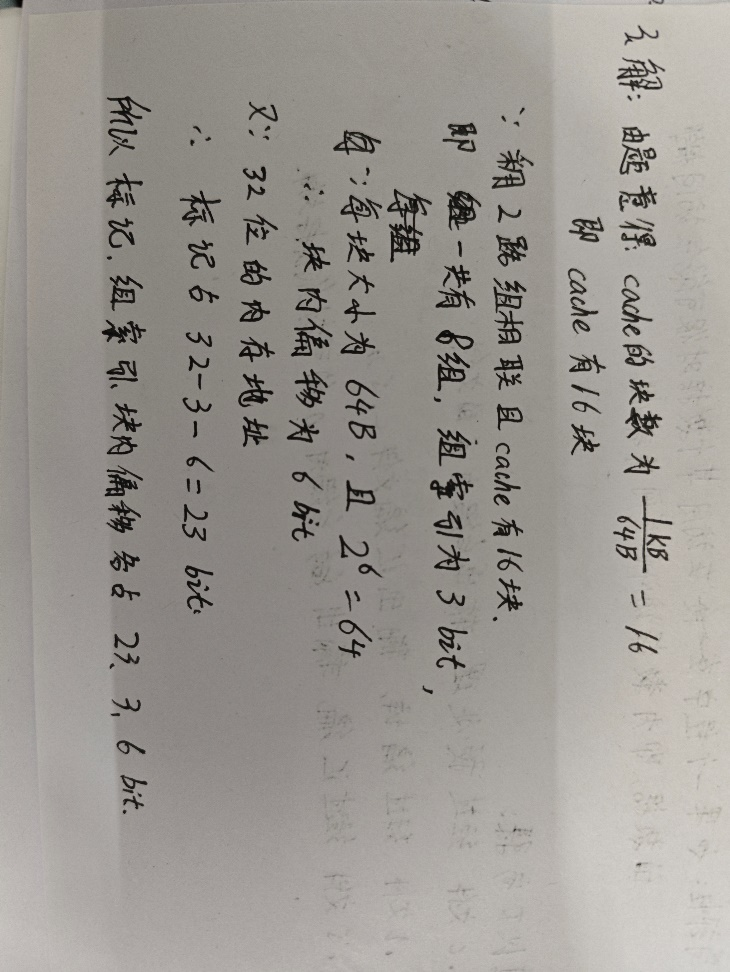 2. 解: 由题意得 cache的块数为 1KB/64B = 16
即 cache 有16块
∵ 采用 2 路组相联且 cache 有16块.
即 一共有 8组, 组索引为 3 bit,
每组
∵ 每块大小为 64B, 且 2⁶ = 64
∴ 块内偏移为 6 bit
又∵ 32 位的内存地址
∴ 标记占 32-3-6=23 bit.
所以标记、组索引、块内偏移各占 23、3、6 bit.